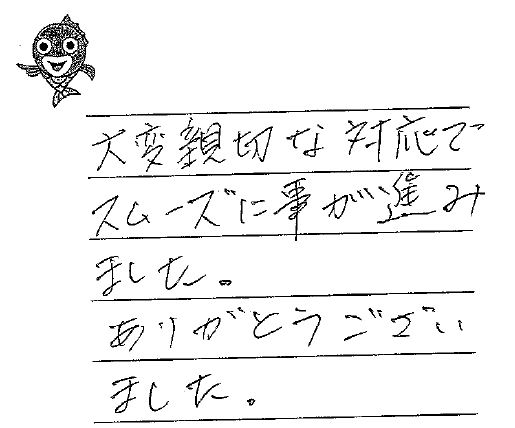 大変親切な対応で
スムーズに事が進み
ました。
ありがとうござい
ました。